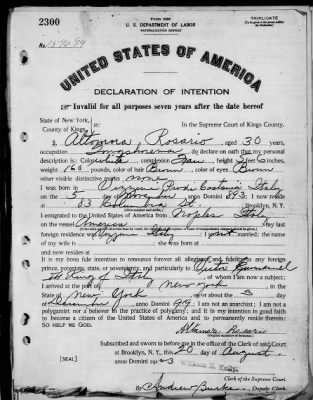 Form 2203
2300 U. S. DEPARTMENT OF LABOR TRIPLICATE
NATURALIZATION SERVICE
No.
UNITED STATES OF AMERICA
DECLARATION OF INTENTION
Invalid for all purposes seven years after the date hereof
State of New York, ss:
County of Kings. In the Supreme Court of Kings County.
I, Altomna Rosario, aged 30 years,
occupation Longshoreman, do declare on oath that my personal
description is: Color white, complexion Fair, height 5 feet 2 inches,
weight 160 pounds, color of hair Brown, color of eyes Brown
other visible distinctive marks none
I was born in Italy
on the 5 day of November, anno Domini 1893; I now reside
at 83 Columbia St. Brooklyn, N.Y.
I emigrated to the United States of America from Naples Italy
on the vessel America; my last
foreign residence was Italy; I am not married; the name
of my wife is; she was born at
and now resides at
It is my bona fide intention to renounce forever all allegiance and fidelity to any foreign
prince, potentate, state, or sovereignty, and particularly to Victor Emmanuel
III King of Italy, of whom I am now a subject;
I arrived at the port of New York, in the
State of New York, on or about the 3 day
of December, anno Domini; I am not an anarchist; I am not a
polygamist nor a believer in the practice of polygamy; and it is my intention in good faith
to become a citizen of the United States of America and to permanently reside therein:
SO HELP ME GOD.
Rosario
Subscribed and sworn to before me in the office of the Clerk of said Court
at Brooklyn, N. Y., this 20 day of August
[SEAL] anno Domini 1923
Clerk of the Supreme Court.
By Andrew Burke, Deputy Clerk.